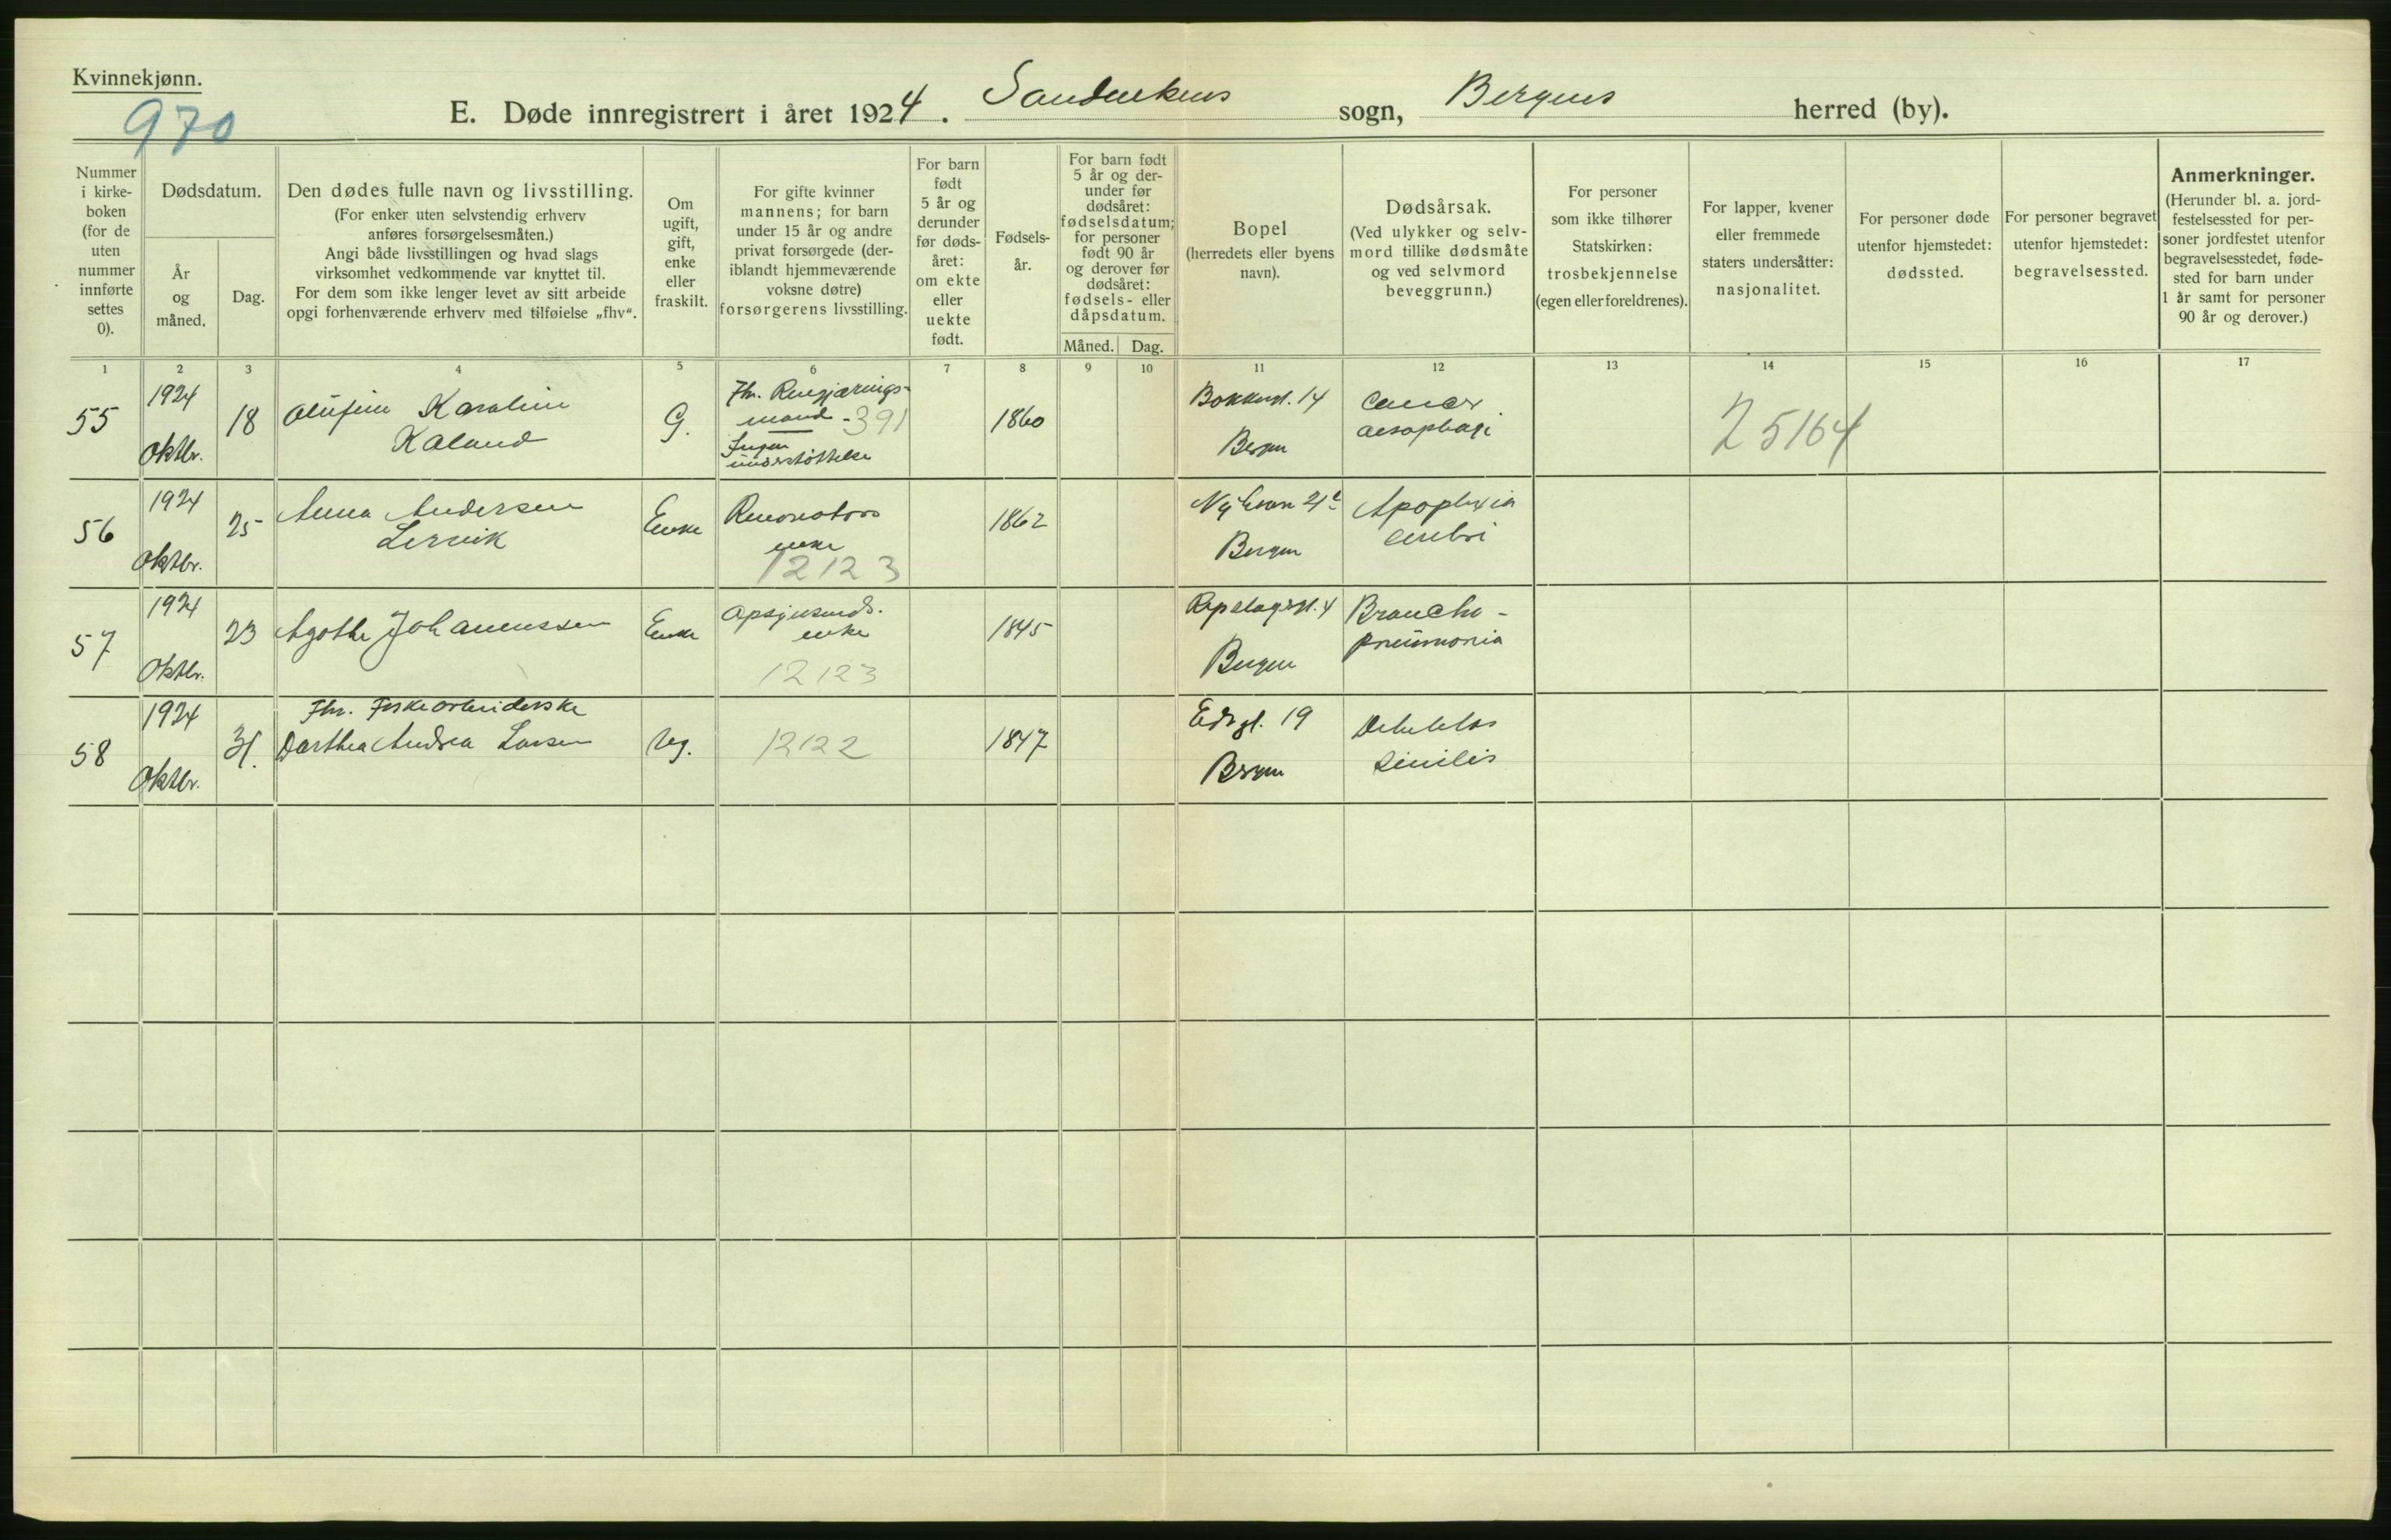 Kvinnekjønn.
970
E. Døde innregistrert i året 1924. Sandvikens sogn, Bergens herred (by).
Nummer i kirke-boken (for de uten nummer innførte settes 0).
Dødsdatum.
År og måned.
Dag.
Den dødes fulle navn og livsstilling.
(For enker uten selvstendig erhverv
anføres forsørgelsesmåten.)
Angi både livsstillingen og hvad slags
virksomhet vedkommende var knyttet til.
For dem som ikke lenger levet av sitt arbeide
opgi forhenværende erhverv med tilføielse „fhv“.
Om ugift, gift, enke eller fraskilt.
For gifte kvinner
mannens; for barn
under 15 år og andre
privat forsørgede (der-
iblandt hjemmeværende
voksne døtre)
forsørgerens livsstilling.
For barn født 5 år og derunder før døds-året: om ekte eller uekte født.
Fødsels-år.
For barn født 5 år og der-under før dødsåret: fødselsdatum; for personer født 90 år og derover før dødsåret: fødsels- eller dåpsdatum.
Måned. Dag.
Bopel
(herredets eller byens
navn).
Dødsårsak.
(Ved ulykker og selv-
mord tillike dødsmåte
og ved selvmord
beveggrunn.)
For personer
som ikke tilhører
Statskirken:
trosbekjennelse
(egen eller foreldrenes).
For lapper, kvener
eller fremmede
staters undersåtter:
nasjonalitet.
For personer døde
utenfor hjemstedet:
dødssted.
For personer begravet
utenfor hjemstedet:
begravelsessted.
Anmerkninger.
(Herunder bl. a. jord-
festelsessted for per-
soner jordfestet utenfor
begravelsesstedet, føde-
sted for barn under
1 år samt for personer
90 år og derover.)
1 2 3 4 5 6 7 8 9 10 11 12 13 14 15 16 17
55 1924 Oktbr. 18 Olufine Karoline Kaland G. Fhv. Rengjørings-mand - 391 Ingen understøttelse 1860 14 Bergen Cancer aesophagi 25164
56 1924 Oktbr. 25 Anna Andersen Lervik Enke enke 12123 1862 Bergen Apoplexia cerebri
57 1924 Oktbr. 23 Agathe Johannessen Enke enke 12123 1845 Repslagergt. 4 Bergen Broncho-pneumonia
58 1924 Oktbr. 31. Fhv. Fiskearbeiderske Dorthea Andrea Larsen Ug. 12122 1847 19 Bergen Debilitas senilis